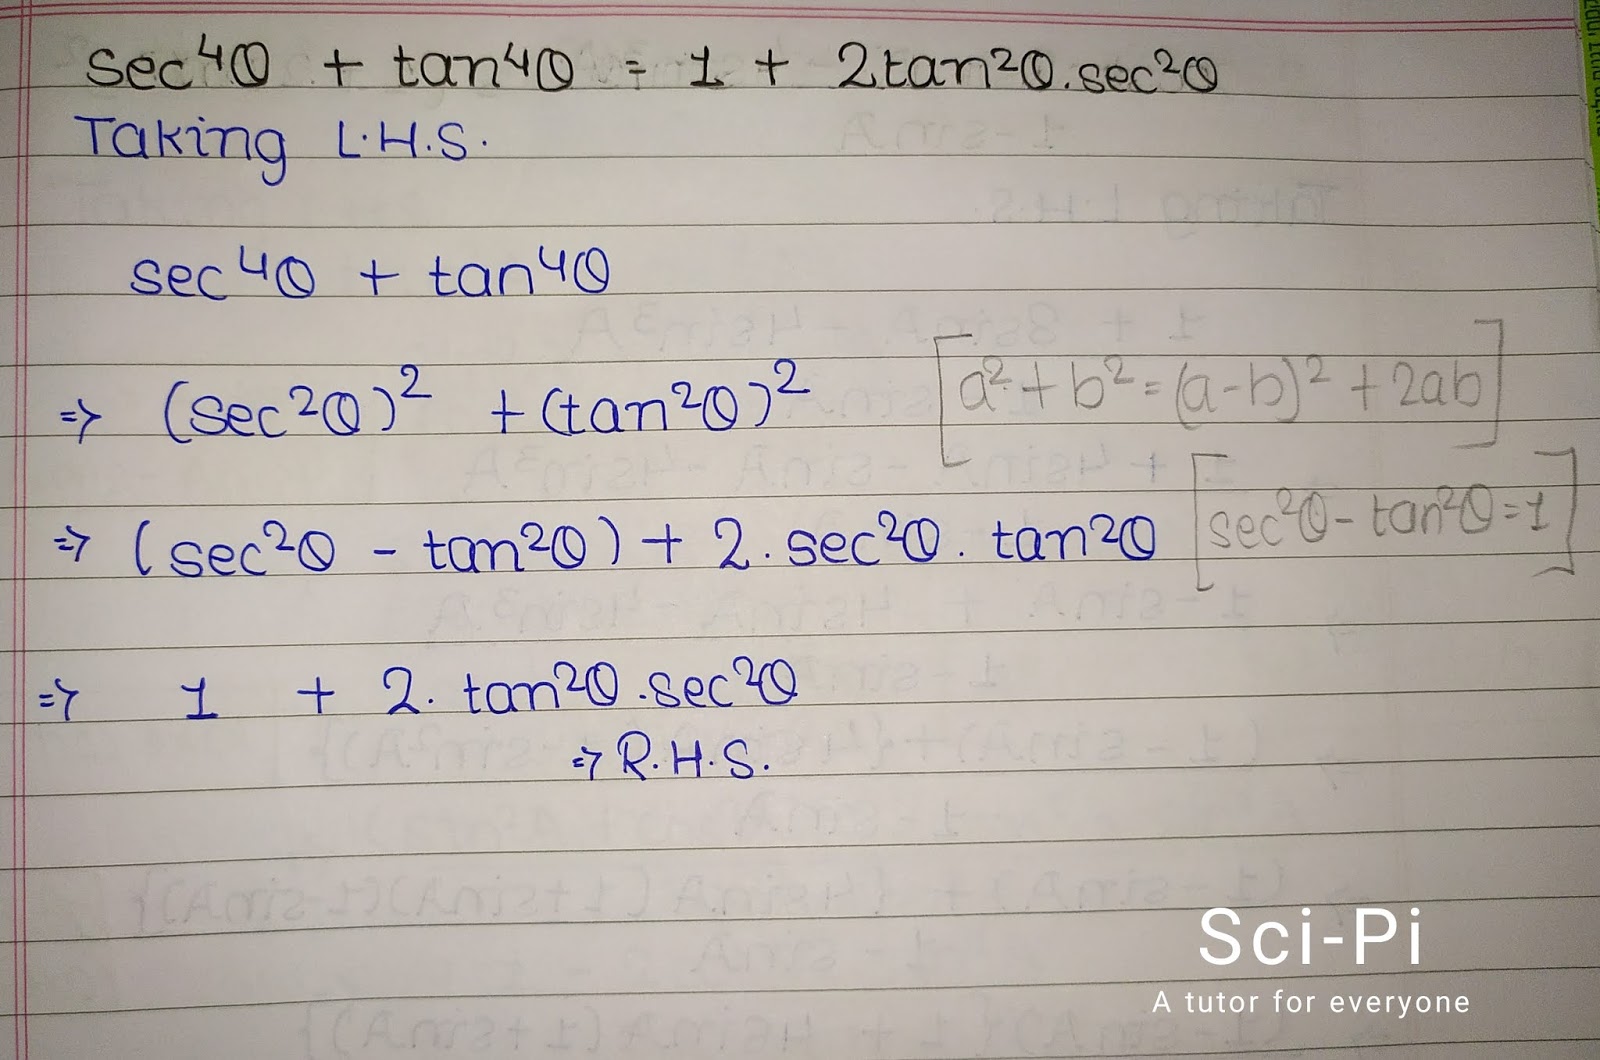 sec⁴θ + tan⁴θ = 1 + 2tan²θ.sec²θ
Taking L.H.S.
sec⁴θ + tan⁴θ
⇒ (sec²θ)² + (tan²θ)² [a² + b² = (a-b)² + 2ab]
⇒ (sec²θ - tan²θ) + 2. sec²θ. tan²θ [sec²θ - tan²θ = 1]
⇒ 1 + 2. tan²θ .sec²θ
⇒ R.H.S.
Sci-Pi
A tutor for everyone